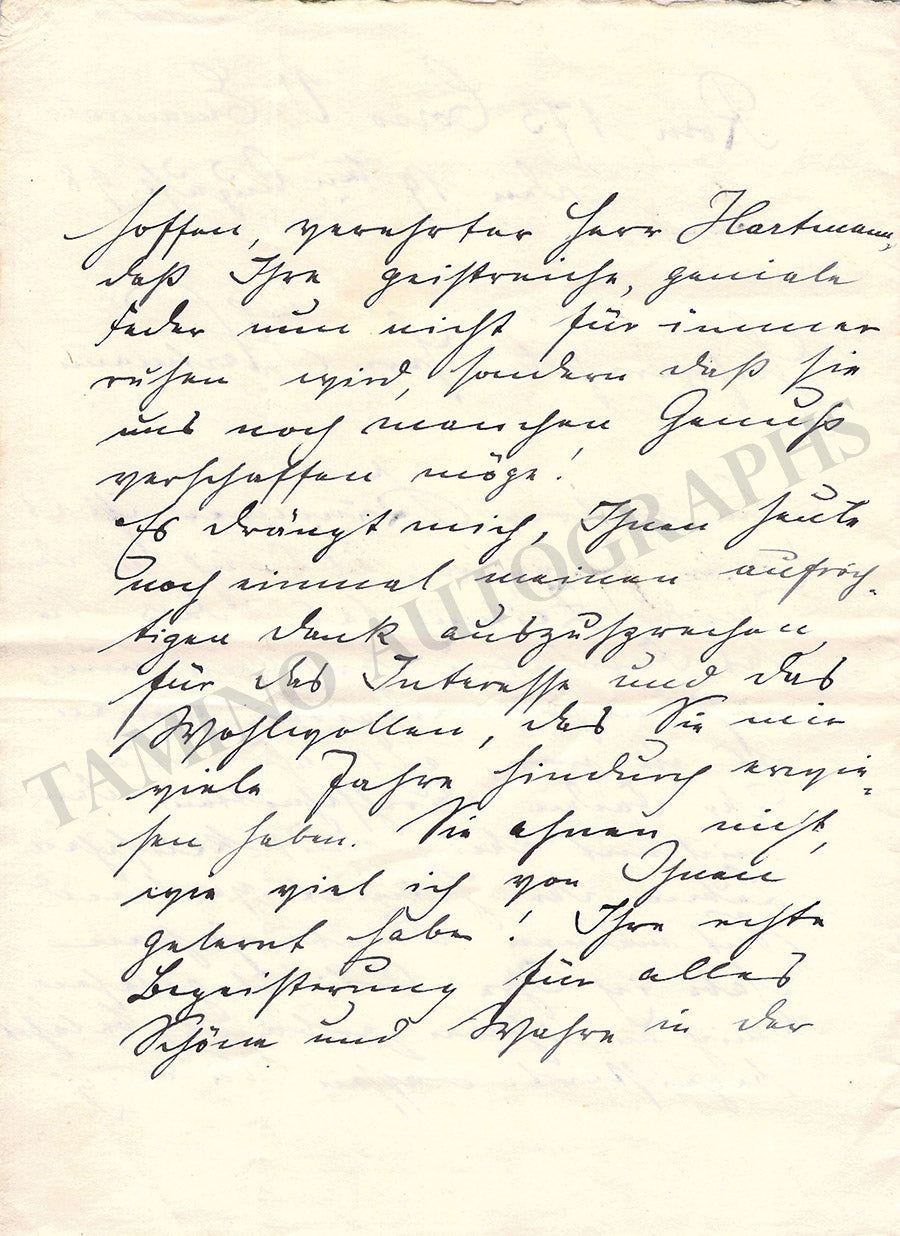 hoffen, verehrter Herr Hartmann,
daß Ihre geistreiche, geniale
Feder nun nicht für immer
ruhen wird, sondern daß sie
uns noch manchen Genuß
verschaffen möge!
Es drängt mich, Ihnen heute
noch einmal meinen aufrich-
tigen Dank auszusprechen
für das Interesse und das
Wohlwollen, das Sie mir
viele Jahre hindurch erwie-
sen haben. Sie ahnen nicht,
wie viel ich von Ihnen
gelernt habe! Ihre echte
Begeisterung für alles
Schöne und Wahre in der
TAMINO AUTOGRAPHS